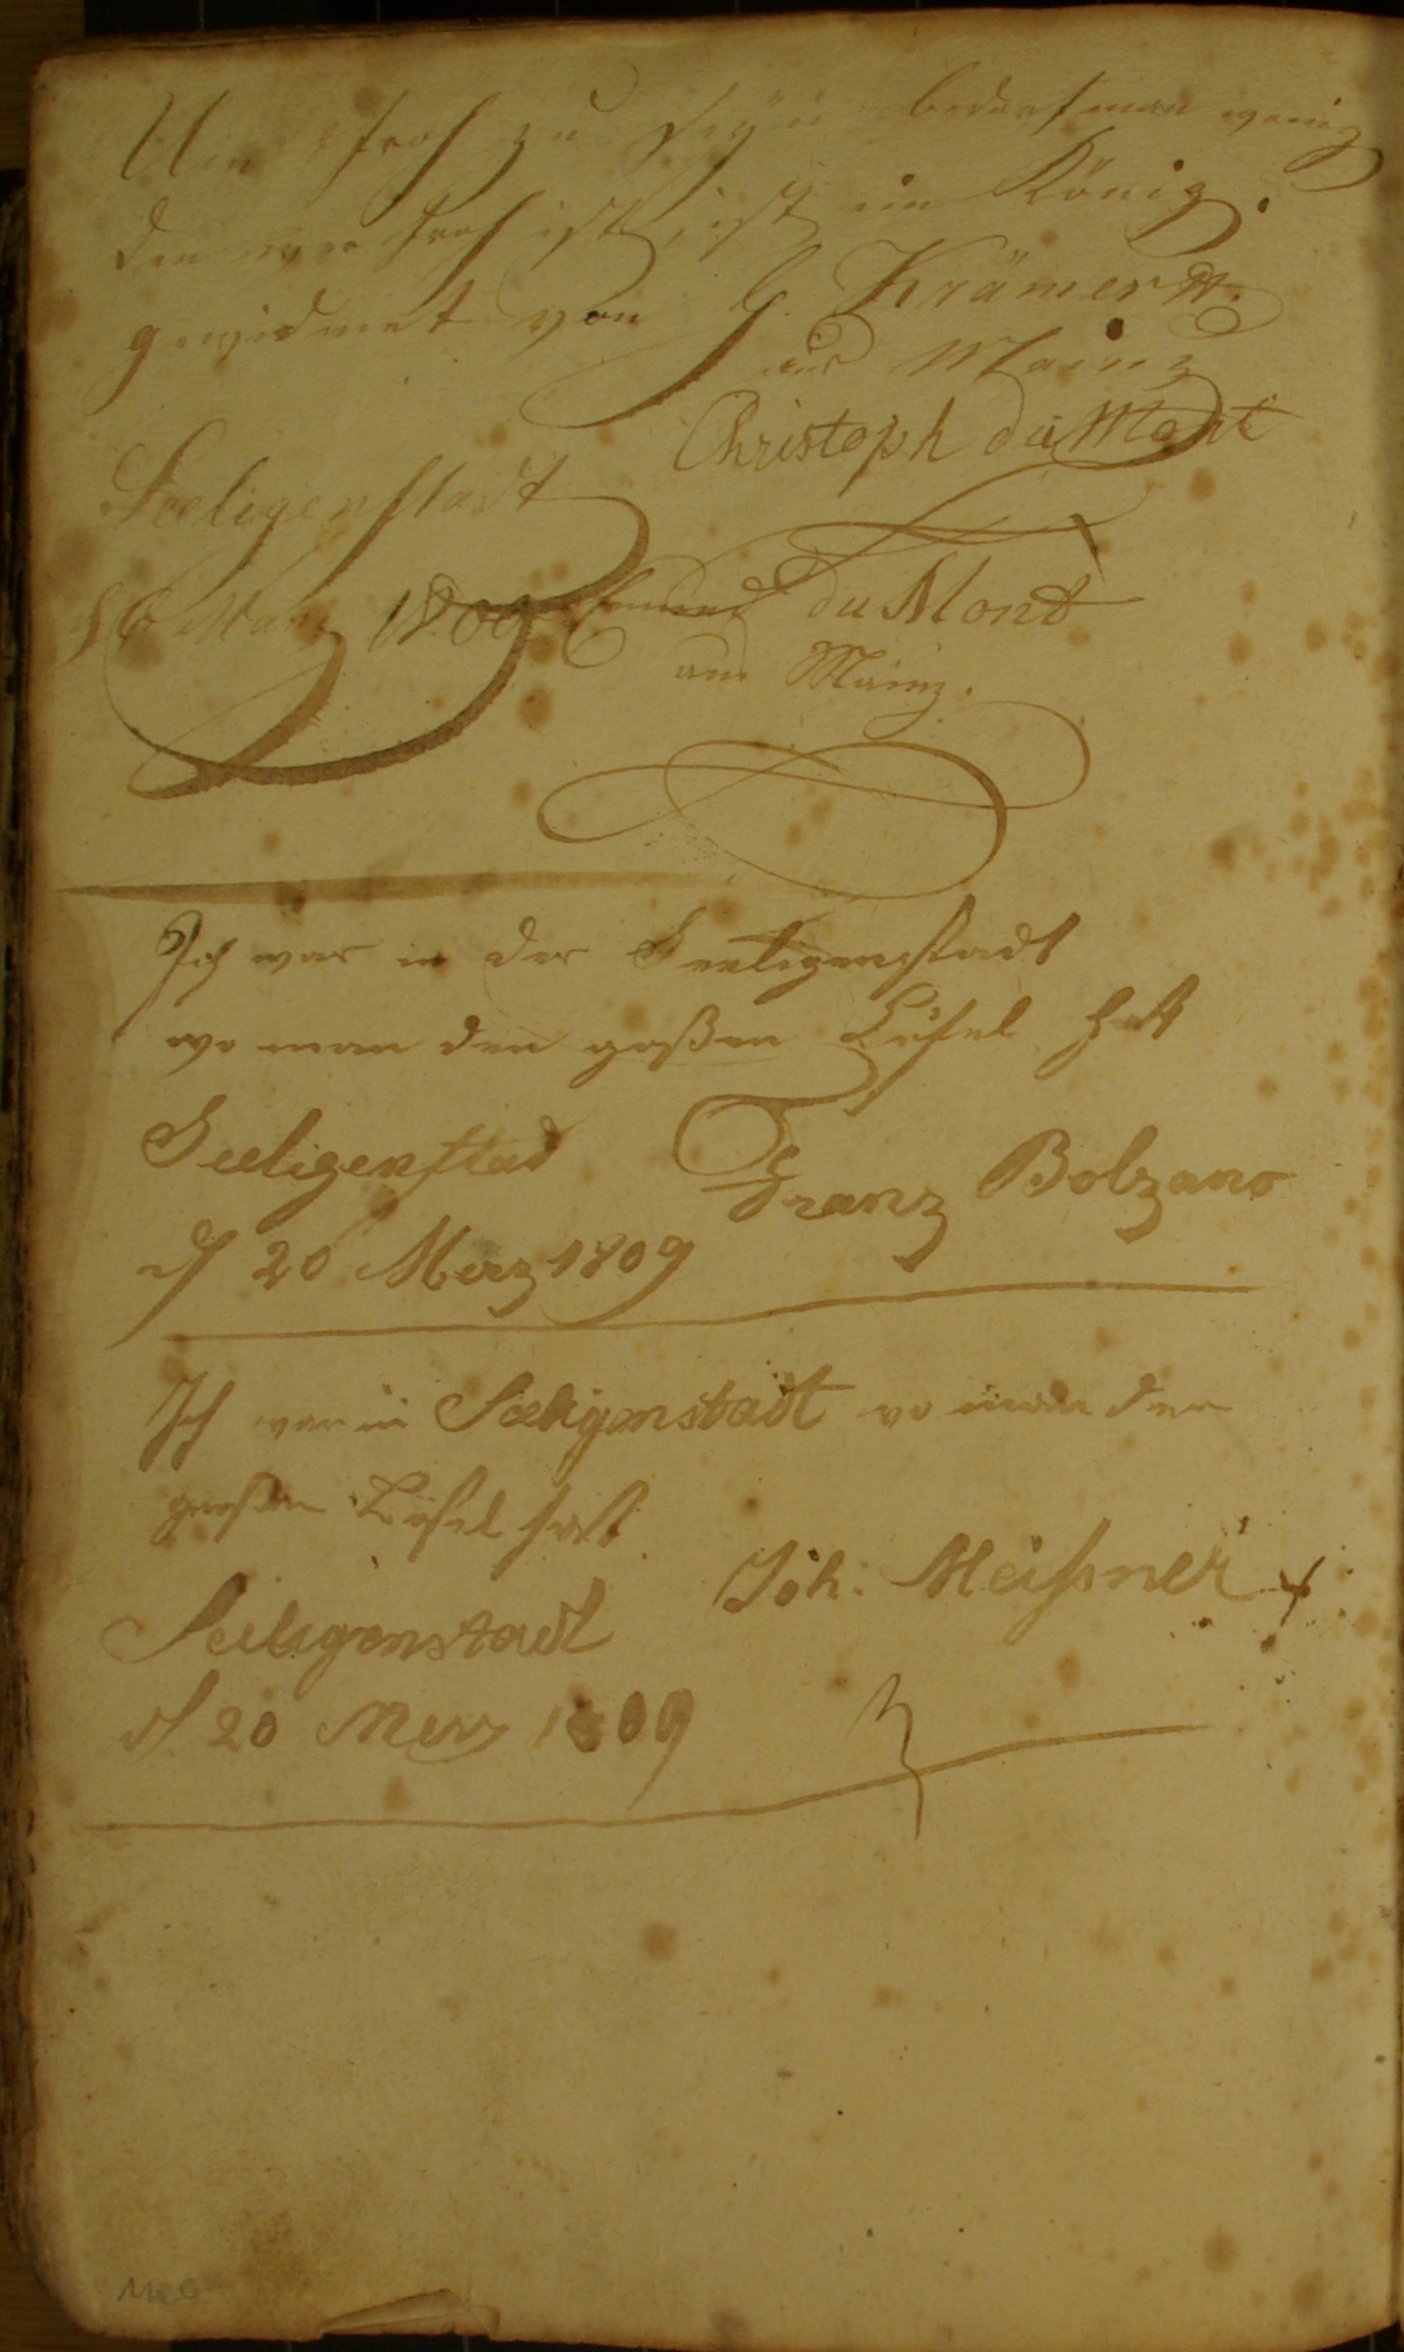 Um froh zu seyn bedarf man wenig
den wer froh ist, ist ein König.
gewidmet von G. Krämer
aus Mainz
Christoph du Mont
Seeligenstadt
d 6 März 1809 du Mont
aus Mainz.
Ich war in der Seeligenstadt
wo man den großen Löfel hatt
Seeligenstad Franz Bolzano
d 20 Merz 1809
Ich war in Seeligenstadt wo man den
großen Löfel hatt
Joh: Meißner
Seeligenstadt
d 20 Merz 1809